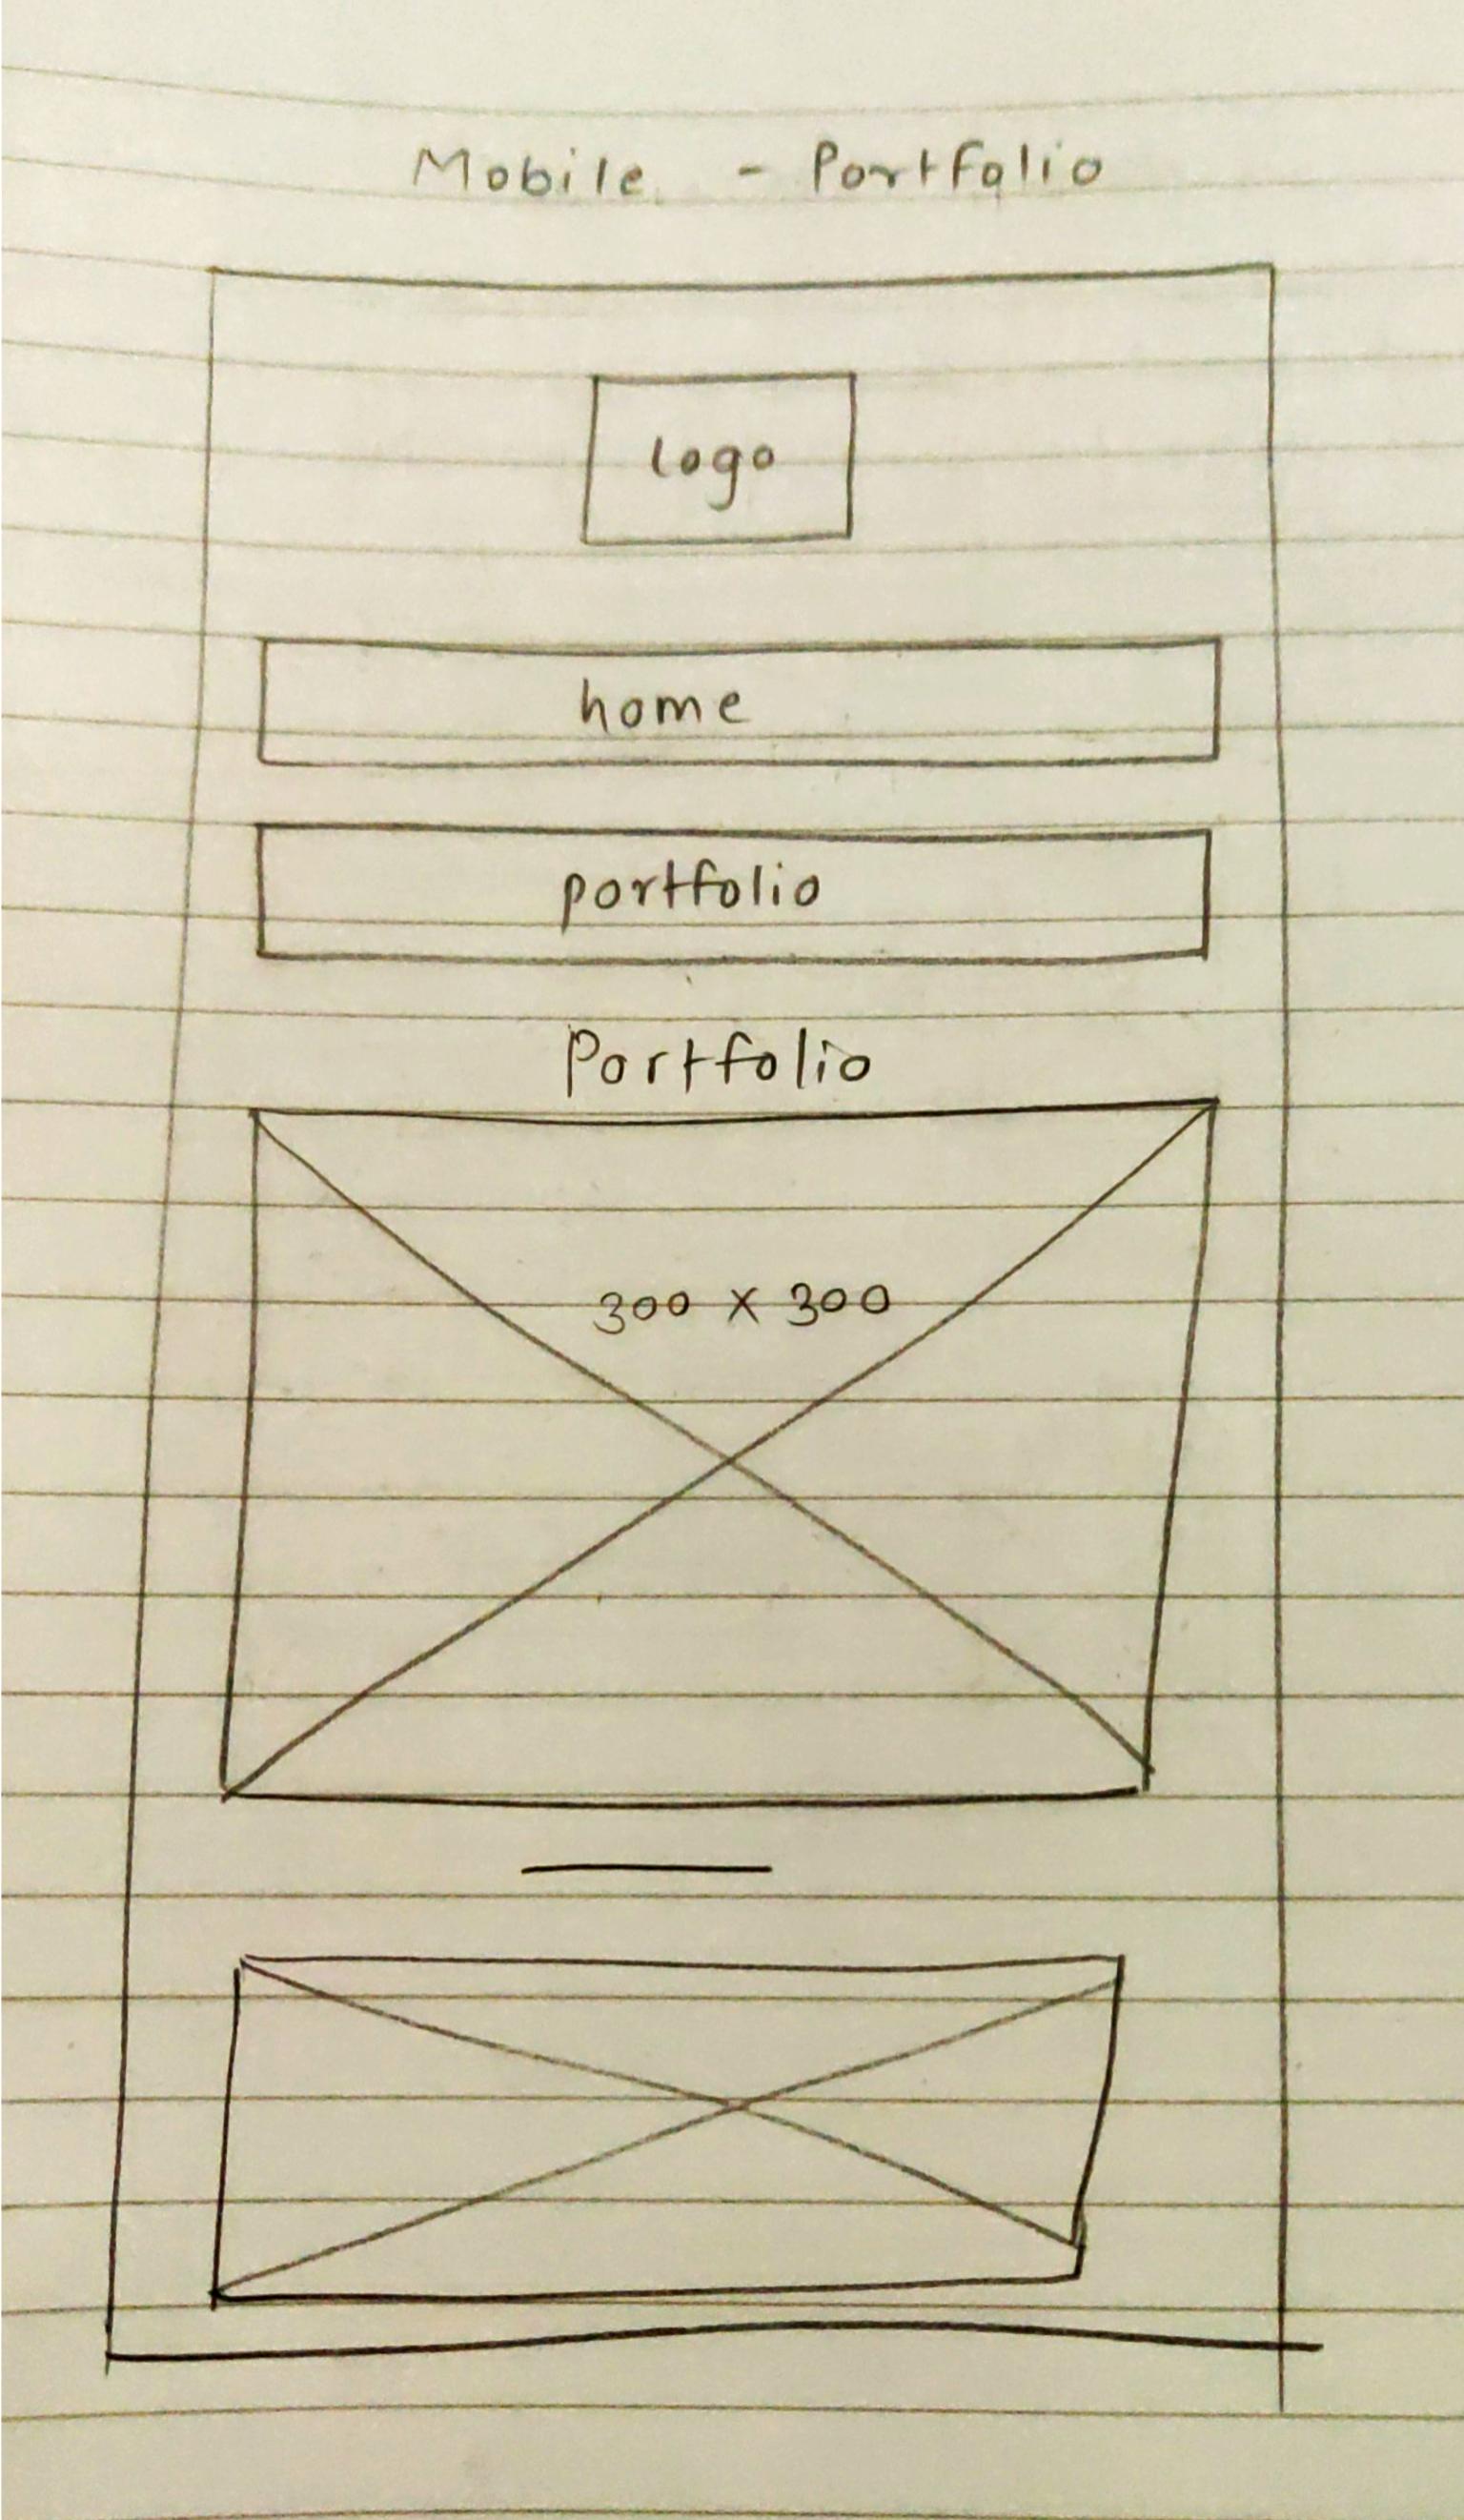 Mobile - Portfolio
logo
home
portfolio
Portfolio
300 x 300